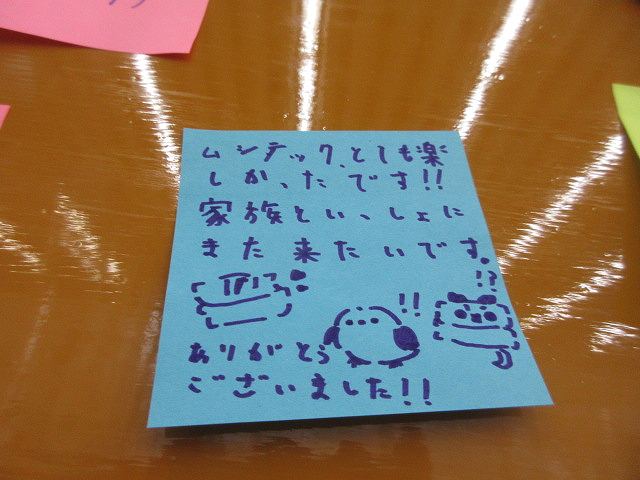 ムシテック、とても楽
しかったです!!
家族といっしょに
また来たいです。
!?
!!
ありがとう
ございました!!